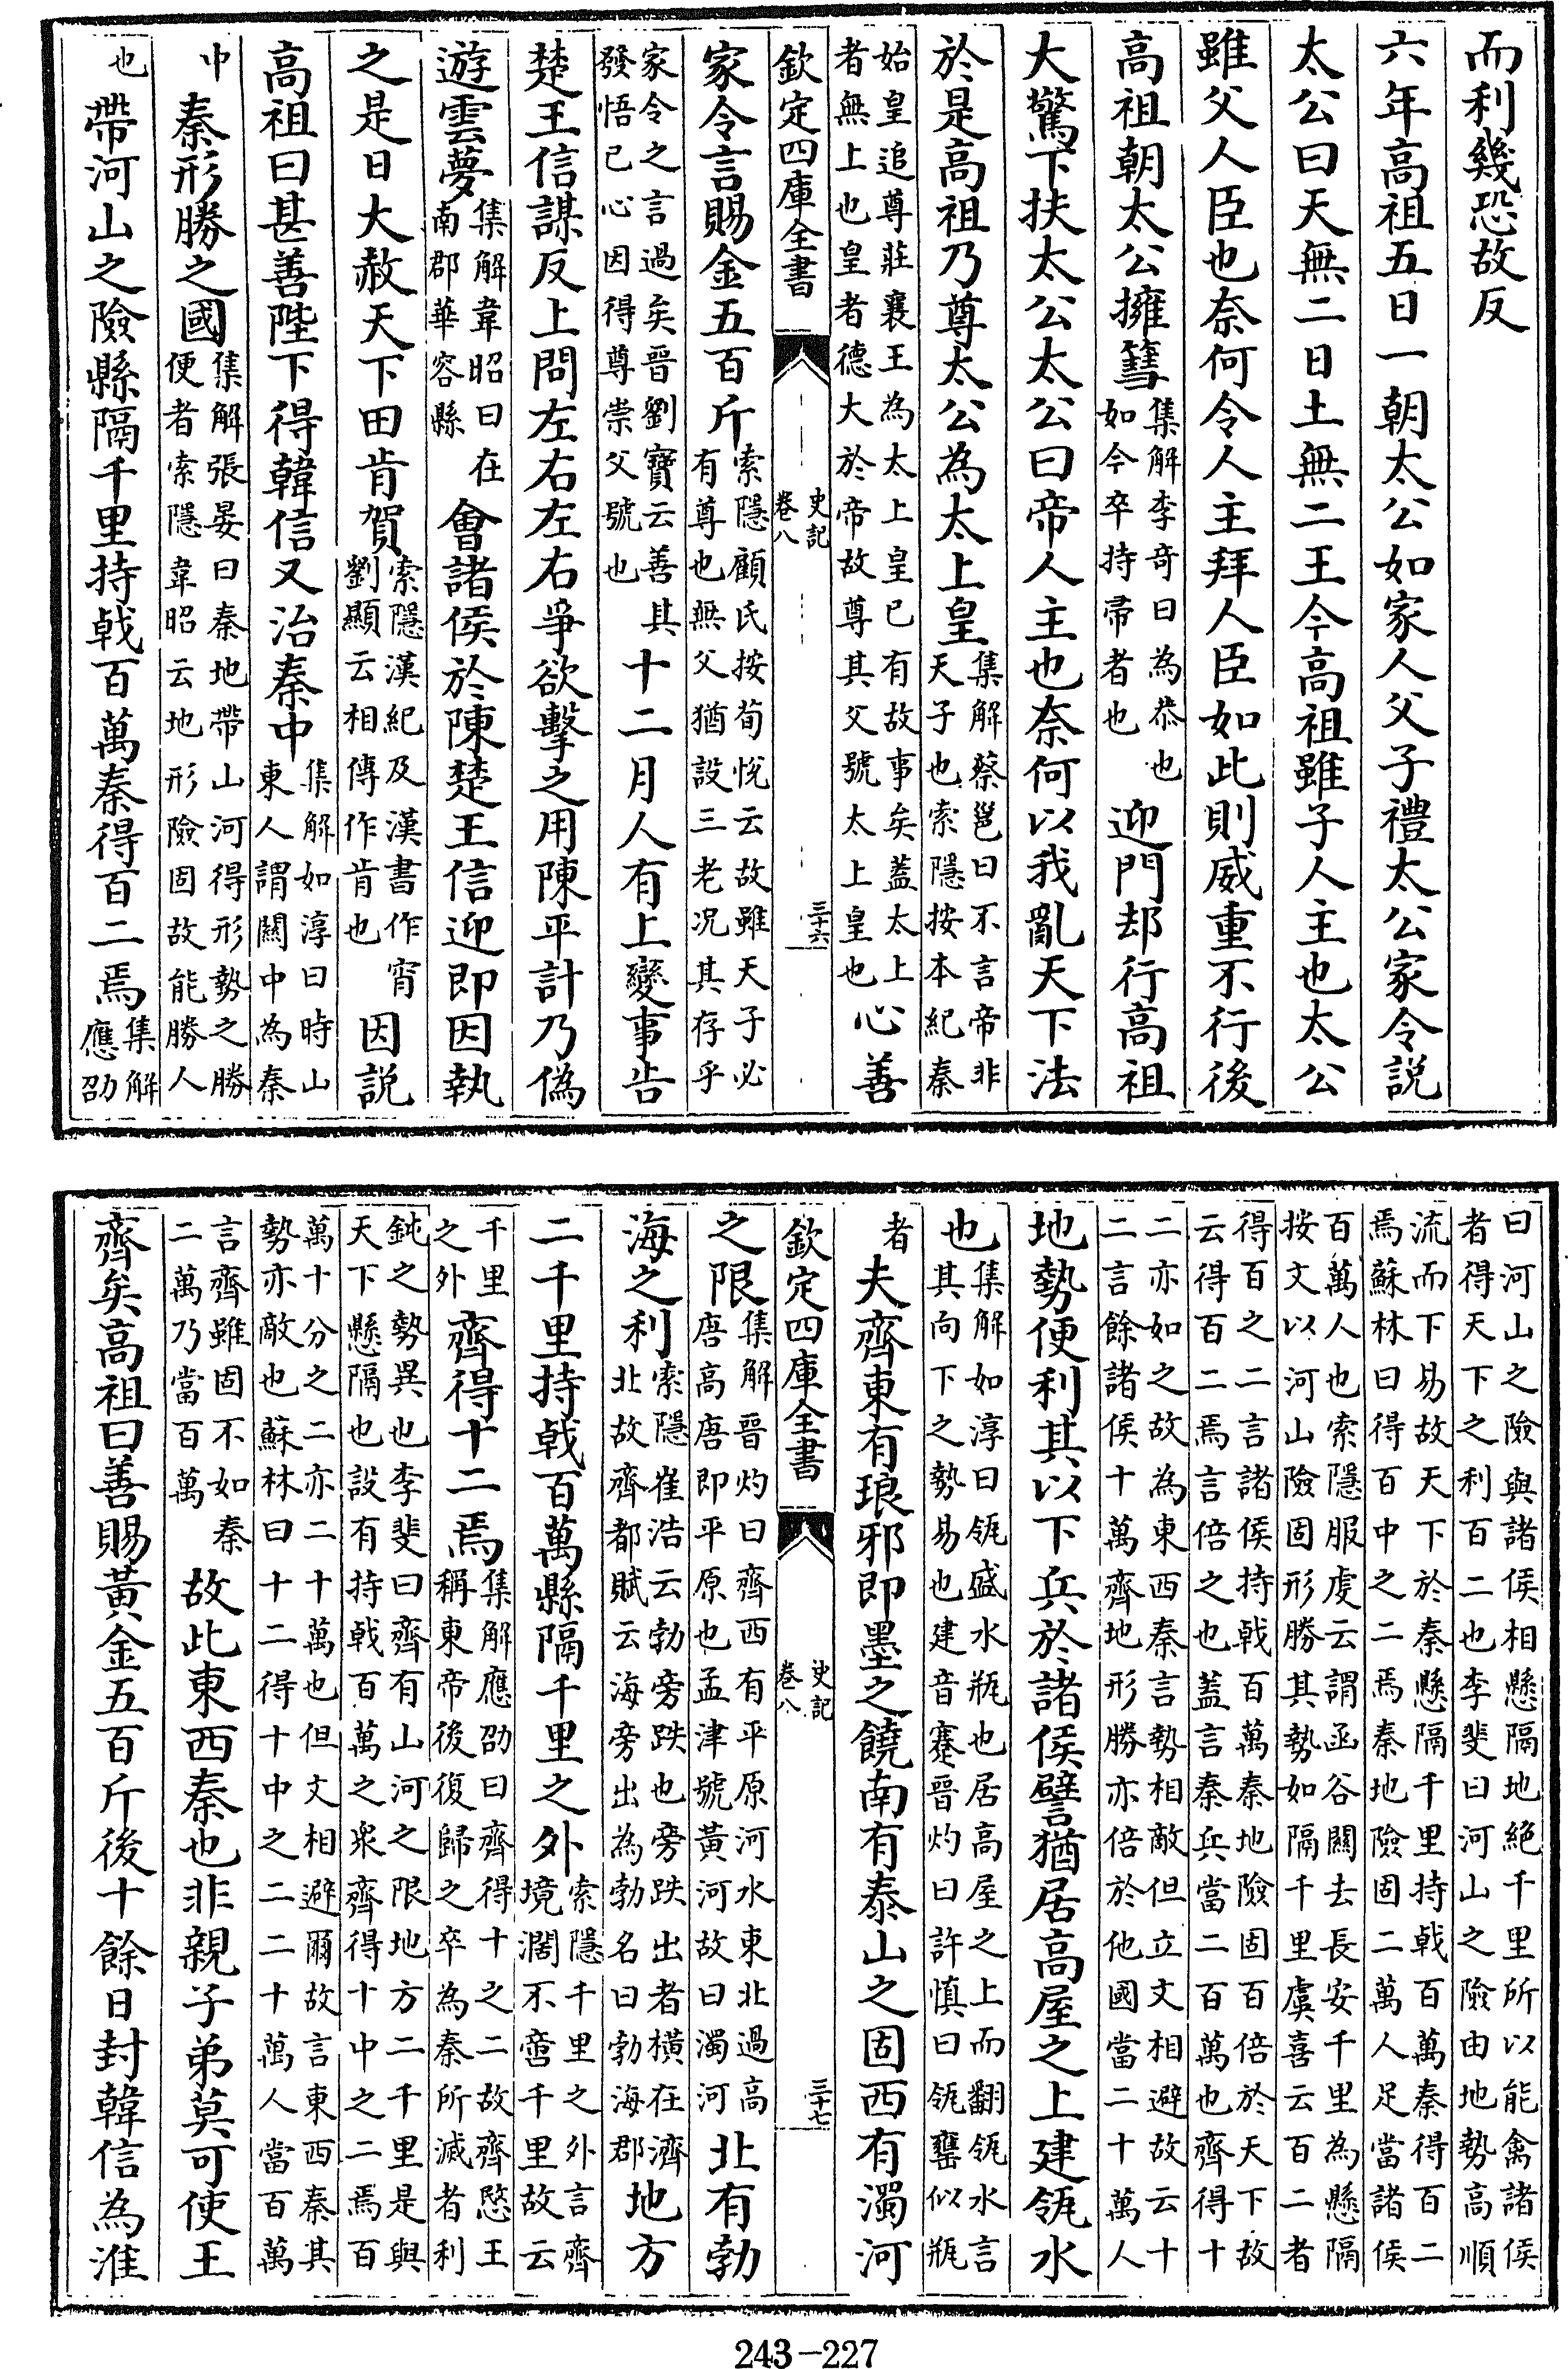 而利幾恐故反
六年高祖五日一朝太公如家人父子禮太公家令説
太公曰天無二日土無二王今高祖雖子人主也太公
雖父人臣也奈何令人主拜人臣如此則威重不行後
高祖朝太公擁篲集解李奇曰為恭也如今卒持帚者也迎門却行高祖
大驚下扶太公太公曰帝人主也奈何以我亂天下法
於是高祖乃尊太公為太上皇集解蔡邕曰不言帝非天子也索隱按本紀秦
始皇追尊莊襄王為太上皇已有故事矣蓋太上者無上也皇者德大於帝故尊其父號太上皇也心善
欽定四庫全書 史記卷八 三十六
家令言賜金五百斤索隱顧氏按荀悅云故雖天子必有尊也無父猶設三老况其存乎
家令之言過矣晉劉寶云善其發悟己心因得尊崇父號也十二月人有上變事告
楚王信謀反上問左右左右爭欲擊之用陳平計乃偽
遊雲夢集解韋昭曰在南郡華容縣會諸侯於陳楚王信迎即因執
之是日大赦天下田肯賀索隱漢紀及漢書作宵劉顯云相傳作肯也因説
高祖曰甚善陛下得韓信又治秦中集解如淳曰時山東人謂關中為秦
中秦形勝之國集解張晏曰秦地帶山河得形勢之勝便者索隱韋昭云地形險固故能勝人
也帶河山之險縣隔千里持戟百萬秦得百二焉集解應劭
曰河山之險與諸侯相懸隔地絶千里所以能禽諸侯者得天下之利百二也李斐曰河山之險由地勢高順
流而下易故天下於秦懸隔千里持戟百萬秦得百二焉蘇林曰得百中之二焉秦地險固二萬人足當諸侯
百萬人也索隱服虔云謂函谷關去長安千里為懸隔按文以河山險固形勝其勢如隔千里虞喜云百二者
得百之二言諸侯持戟百萬秦地險固百倍於天下故云得百二焉言倍之也蓋言秦兵當二百萬也齊得十
二亦如之故為東西秦言勢相敵但立文相避故云十二言餘諸侯十萬齊地形勝亦倍於他國當二十萬人
地勢便利其以下兵於諸侯譬猶居高屋之上建瓴水
也集解如淳曰瓴盛水瓶也居高屋之上而翻瓴水言其向下之勢易也建音蹇晉灼曰許慎曰瓴罋似瓶
者夫齊東有琅邪即墨之饒南有泰山之固西有濁河
欽定四庫全書 史記卷八 三十七
之限集解晉灼曰齊西有平原河水東北過高唐高唐即平原也孟津號黃河故曰濁河北有勃
海之利索隱崔浩云勃旁跌也旁跌出者橫在濟北故齊都賦云海旁出為勃名曰勃海郡地方
二千里持戟百萬縣隔千里之外索隱千里之外言齊境濶不啻千里故云
千里之外齊得十二焉集解應劭曰齊得十之二故齊愍王稱東帝後復歸之卒為秦所滅者利
鈍之勢異也李斐曰齊有山河之限地方二千里是與天下懸隔也設有持戟百萬之衆齊得十中之二焉百
萬十分之二亦二十萬也但文相避爾故言東西秦其勢亦敵也蘇林曰十二得十中之二二十萬人當百萬
言齊雖固不如秦二萬乃當百萬故此東西秦也非親子弟莫可使王
齊矣高祖曰善賜黃金五百斤後十餘日封韓信為淮
243—227